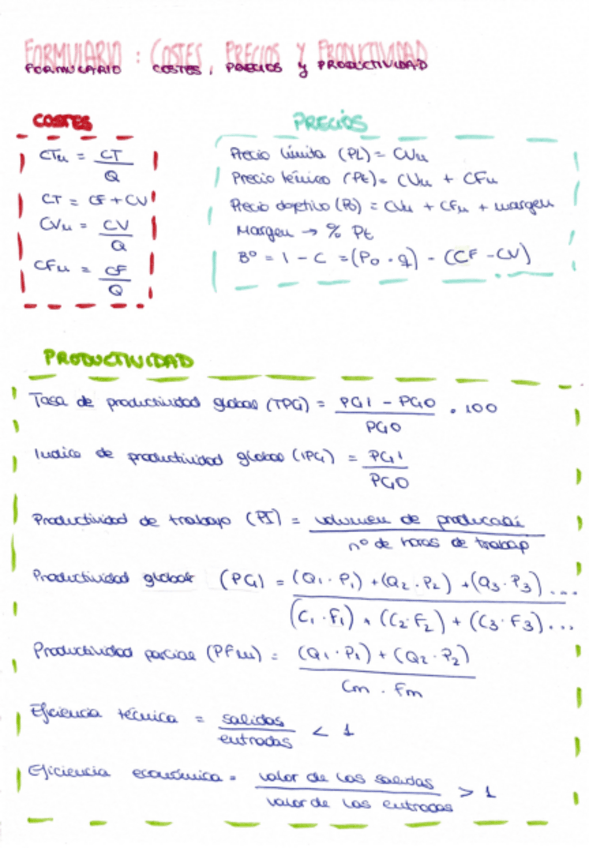 FORMULARIO : COSTES, PRECIOS Y PRODUCTIVIDAD
FORMULARIO COSTES, PRECIOS y PRODUCTIVIDAD
COSTES
CTu = CT / Q
CT = CF + CV
CVu = CV / Q
CFu = CF / Q
PRECIOS
Precio límite (PL) = CVu
Precio técnico (Pt) = CVu + CFu
Precio objetivo (Po) = CVu + CFu + margen
Margen → % Pt
Bº = I - C = (Po · q) - (CF - CV)
PRODUCTIVIDAD
Tasa de productividad global (TPG) = PG1 - PG0 / PG0 · 100
Indice de productividad global (IPG) = PG1 / PG0
Productividad de trabajo (PT) = volumen de producción / nº de horas de trabajo
Productividad global (PG) = (Q1 · P1) + (Q2 · P2) + (Q3 · P3) ... / (C1 · F1) + (C2 · F2) + (C3 · F3) ...
Productividad parcial (PFm) = (Q1 · P1) + (Q2 · P2) / Cm · Fm
Eficiencia técnica = salidas / entradas < 1
Eficiencia económica = valor de las salidas / valor de las entradas > 1